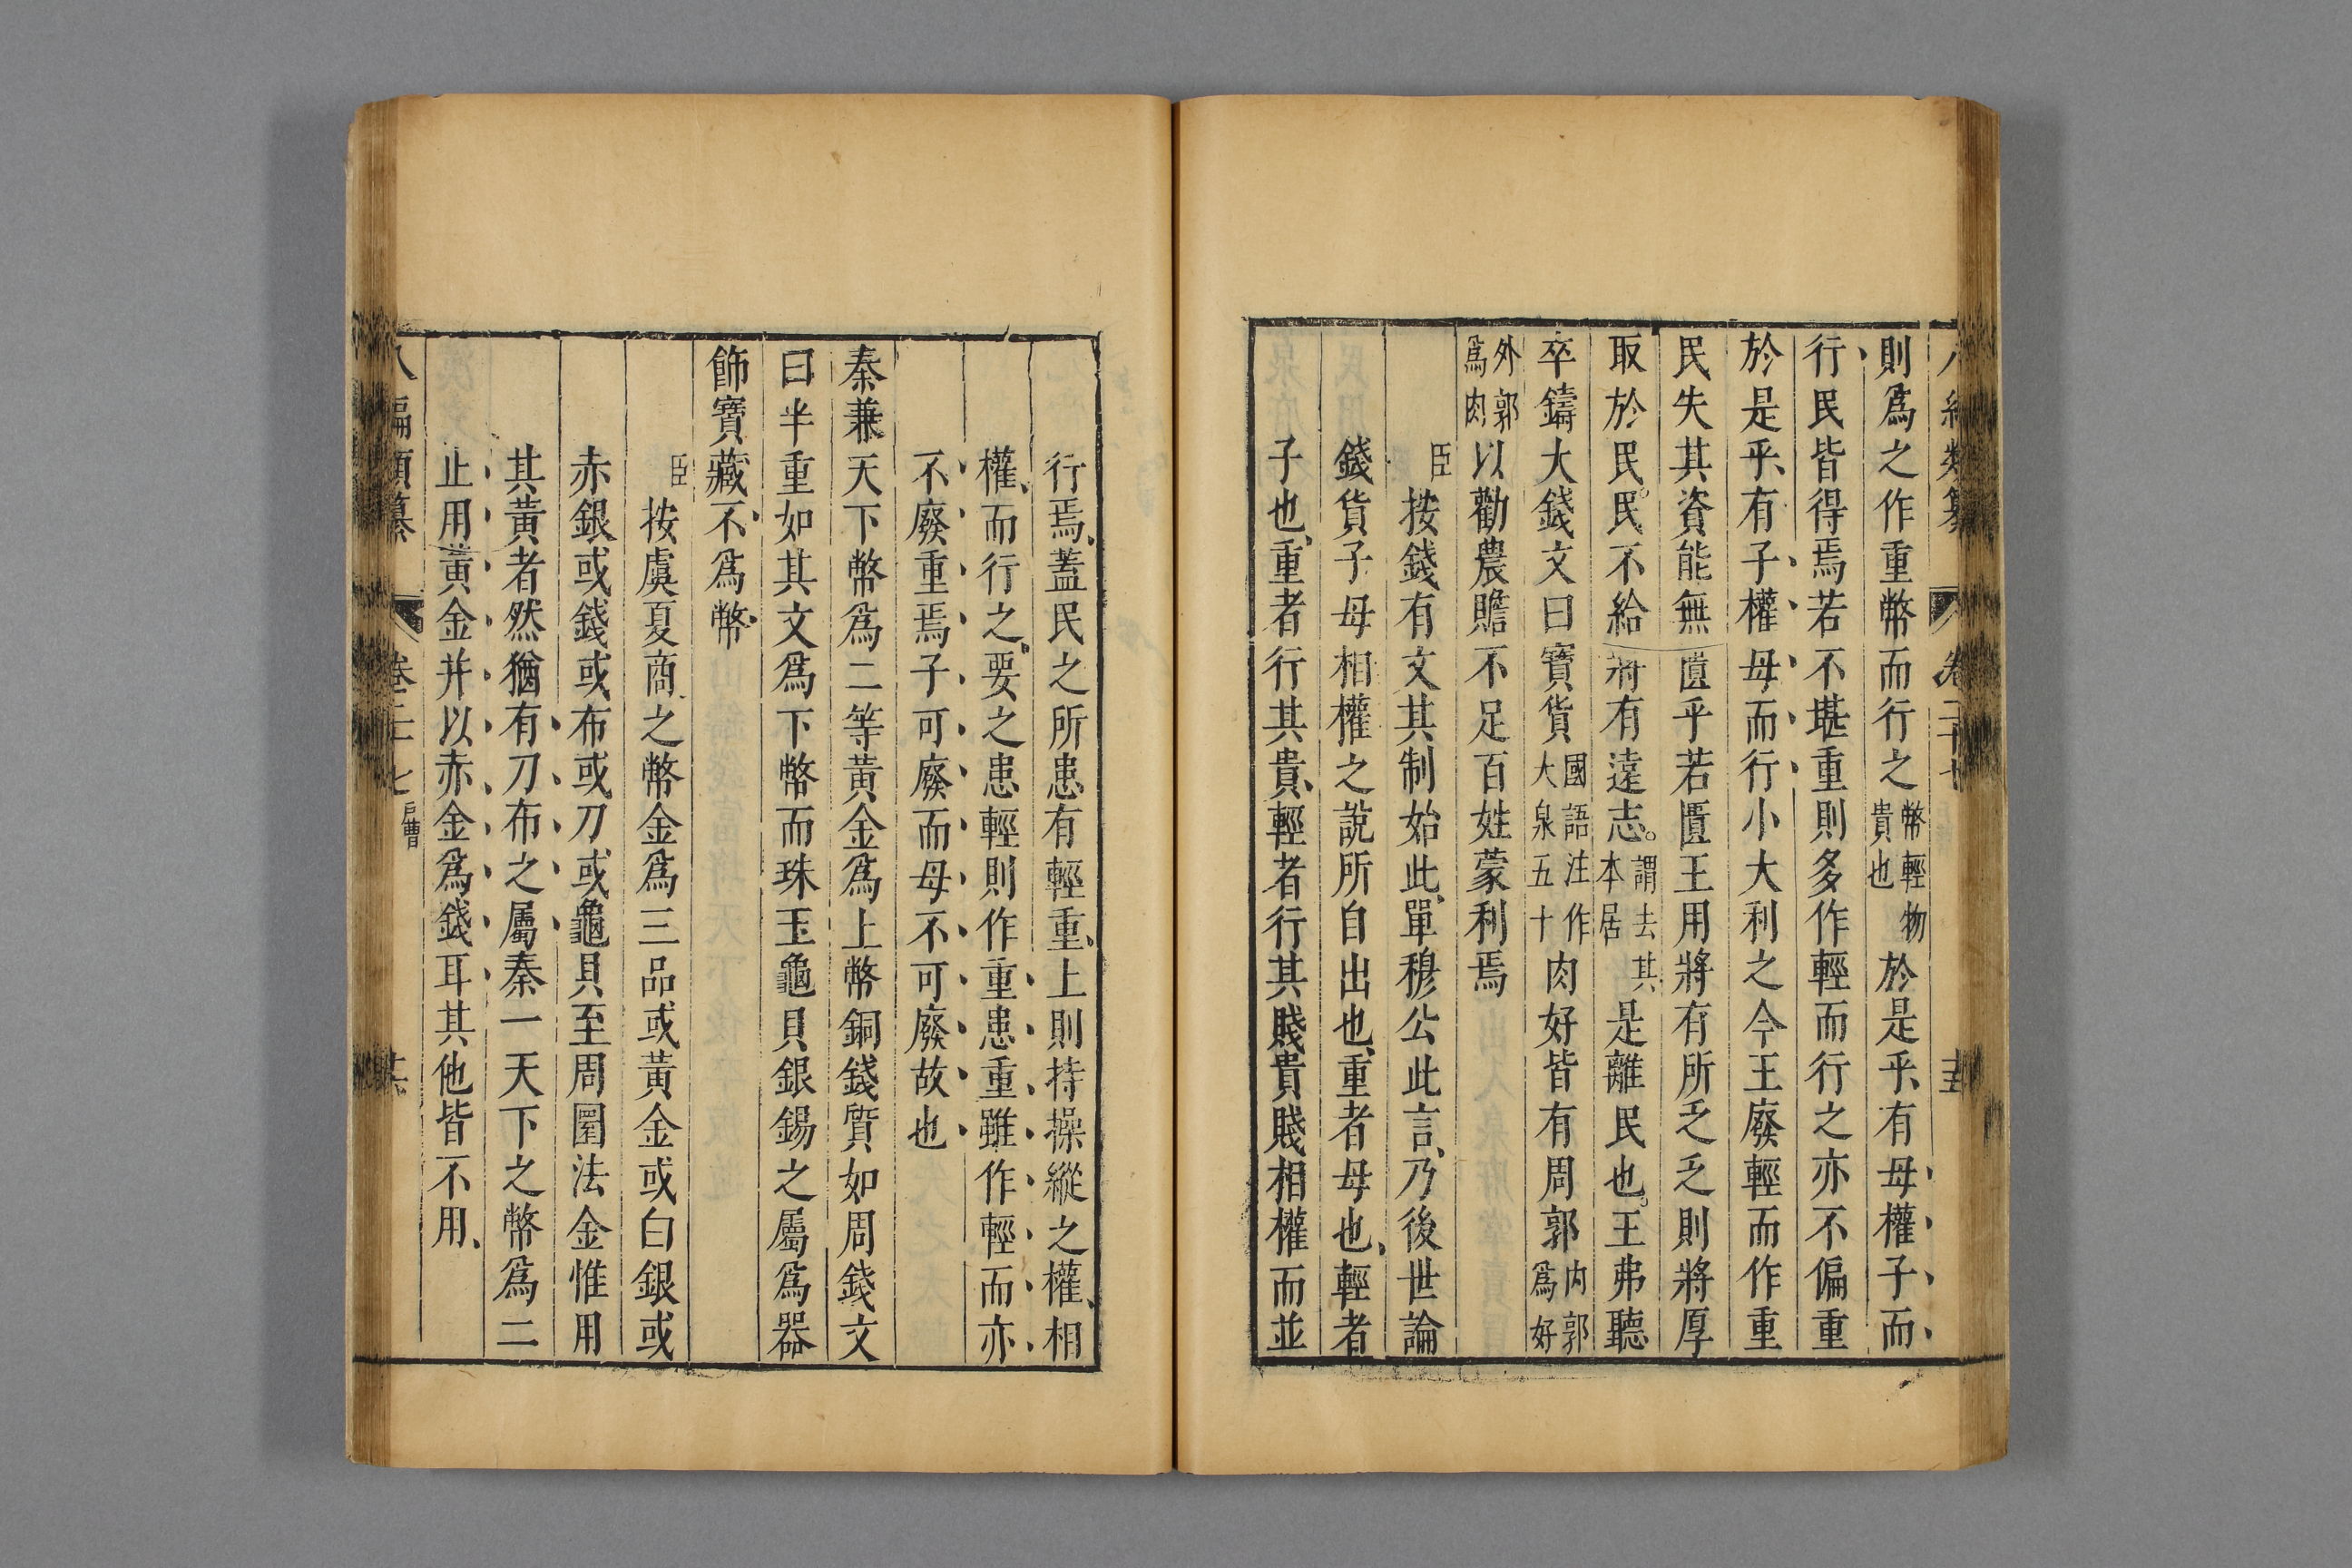 則爲之作重幣而行之幣輕物貴也於是乎有母權子而
行民皆得焉若不堪重則多作輕而行之亦不偏重
於是乎有子權母而行小大利之今王廢輕而作重
民失其資能無匱乎若匱王用將有所乏乏則將厚
取於民民不給將有遠志謂去其本居是離民也王弗聽
卒鑄大錢文曰寶貨國語注作大泉五十肉好皆有周郭内郭爲好
外郭爲肉以勸農贍不足百姓蒙利焉
臣按錢有文其制始此單穆公此言乃後世論
錢貨子母相權之說所自出也重者母也輕者
子也重者行其貴輕者行其賤貴賤相權而並
行焉蓋民之所患有輕重上則持操縱之權相
權而行之要之患輕則作重患重雖作輕而亦
不廢重焉子可廢而母不可廢故也
秦兼天下幣爲二等黃金爲上幣銅錢質如周錢文
曰半重如其文爲下幣而珠玉龜貝銀錫之屬爲器
飾寶藏不爲幣
臣按虞夏商之幣金爲三品或黃金或白銀或
赤銀或錢或布或刀或龜貝至周圜法金惟用
其黃者然猶有刀布之屬秦一天下之幣爲二
止用黃金并以赤金爲錢耳其他皆不用